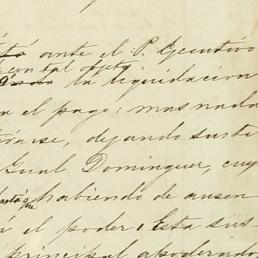 ante el P. Ejecutivo
con tal objeto
la liquidacion
n el pago: mas nada
dejando susti
Gual Dominguez, cuy
habiendo de ausen
n el poder. Esta sus
principal apoderado